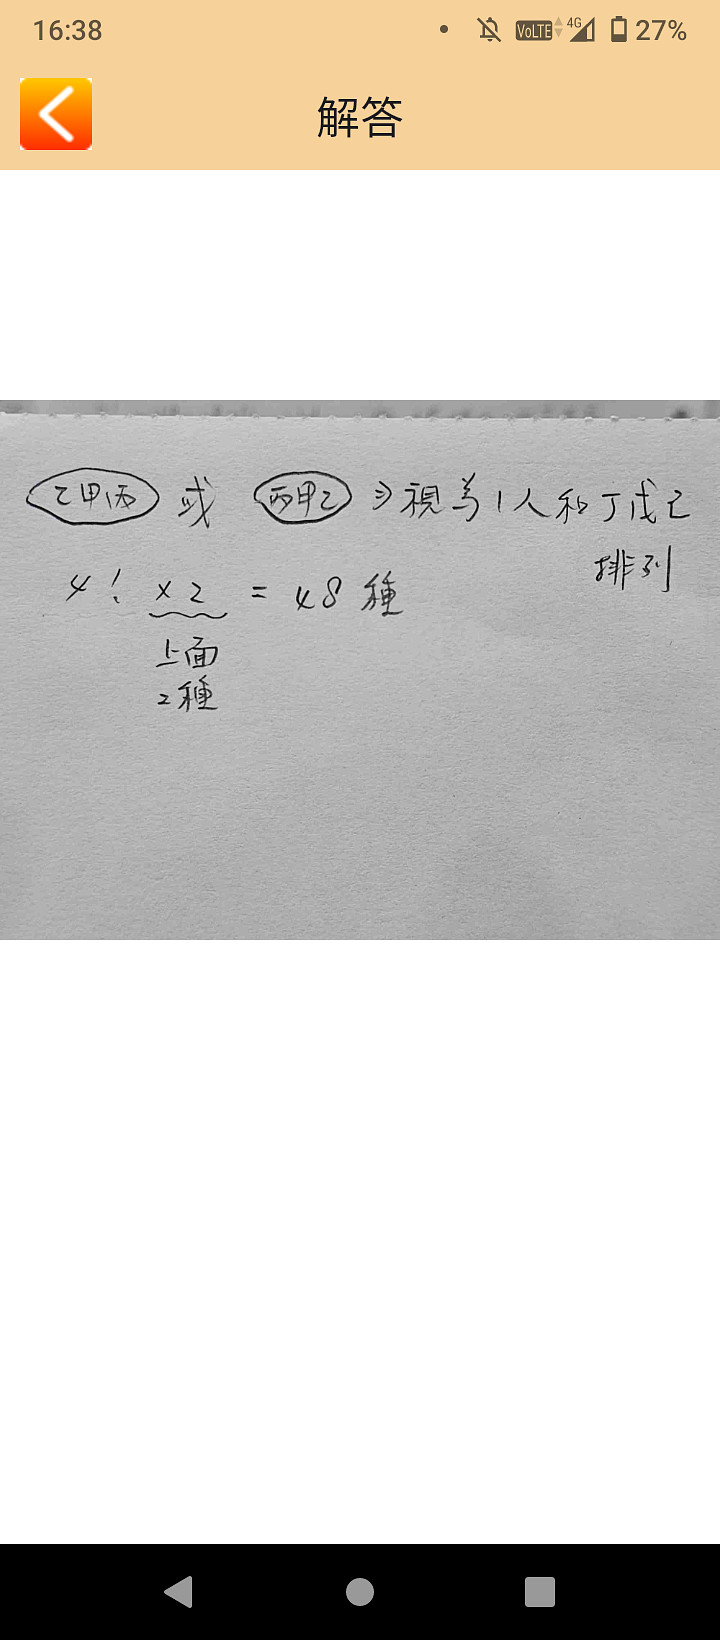 16:38 VoLTE 4G 27%
解答
乙甲丙 或 丙甲乙 ⇒視為1人和丁戊己
排列
4! ×2 = 48種
上面
2種